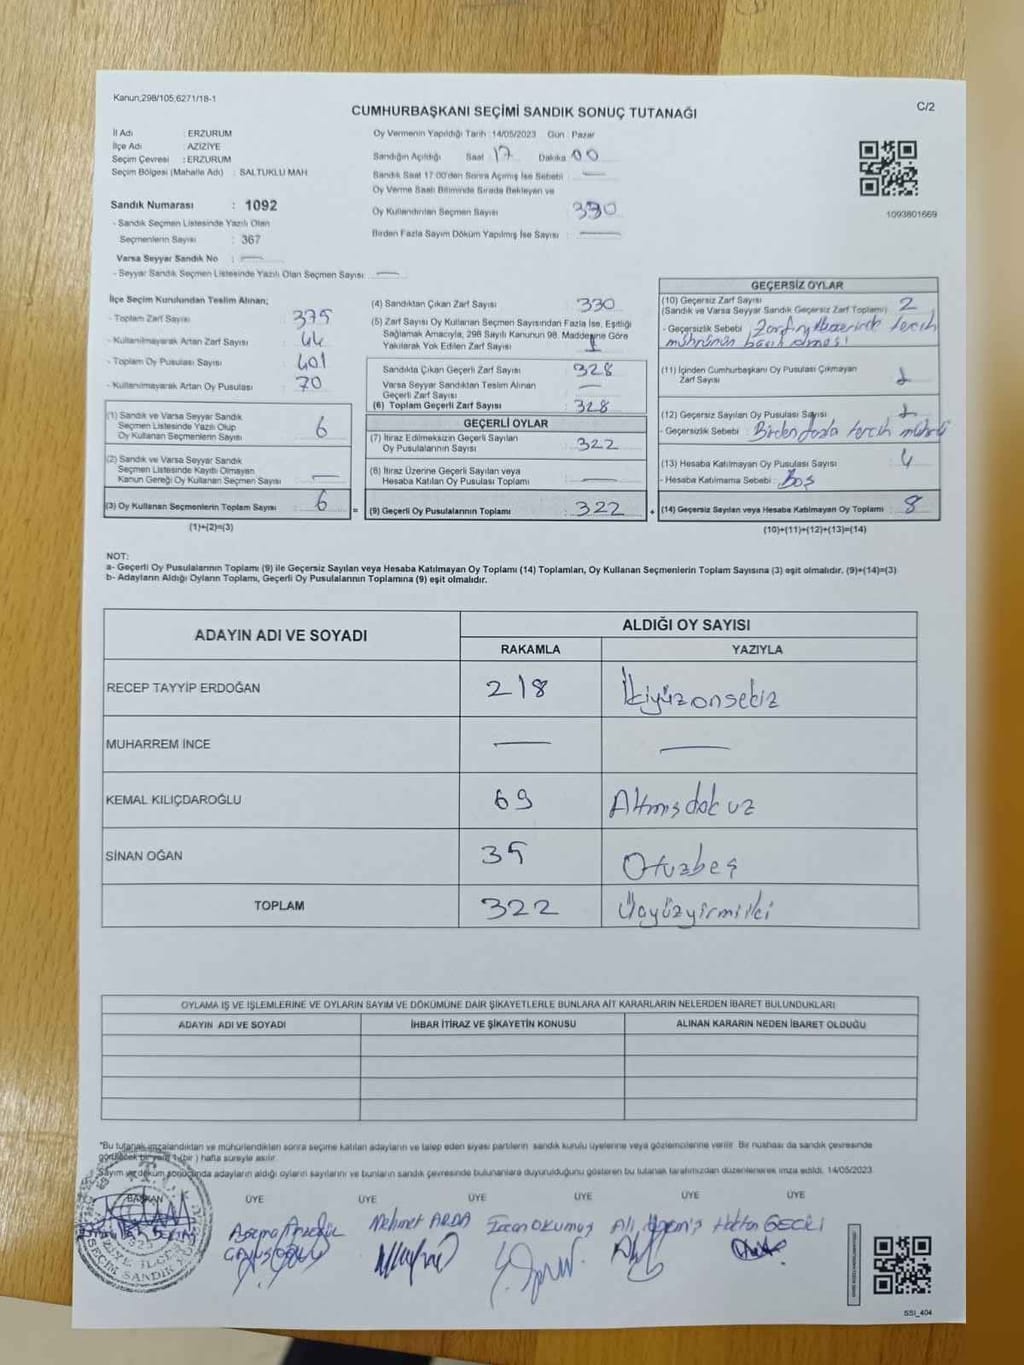 Kanun,298/105,6271/18-1
C/2
CUMHURBAŞKANI SEÇİMİ SANDIK SONUÇ TUTANAĞI
İl Adı : ERZURUM
İlçe Adı : AZİZİYE
Seçim Çevresi : ERZURUM
Seçim Bölgesi (Mahalle Adı) : SALTUKLU MAH
Sandık Numarası : 1092
- Sandık Seçmen Listesinde Yazılı Olan
Seçmenlerin Sayısı : 367
Varsa Seyyar Sandık No : —
- Seyyar Sandık Seçmen Listesinde Yazılı Olan Seçmen Sayısı : —
Oy Vermenin Yapıldığı Tarih :14/05/2023 Gün : Pazar
Sandığın Açıldığı Saat 17 Dakika 00
Sandık Saat 17:00'den Sonra Açılmış İse Sebebi —
Oy Verme Saati Bitiminde Sırada Bekleyen ve
Oy Kullandırılan Seçmen Sayısı 330
Birden Fazla Sayım Döküm Yapılmış İse Sayısı : —
1093801669
İlçe Seçim Kurulundan Teslim Alınan;
- Toplam Zarf Sayısı : 375
- Kullanılmayarak Artan Zarf Sayısı : 44
- Toplam Oy Pusulası Sayısı : 401
- Kullanılmayarak Artan Oy Pusulası : 70
(1) Sandık ve Varsa Seyyar Sandık
Seçmen Listesinde Yazılı Olup
Oy Kullanan Seçmenlerin Sayısı : 6
(2) Sandık ve Varsa Seyyar Sandık
Seçmen Listesinde Kayıtlı Olmayan
Kanun Gereği Oy Kullanan Seçmen Sayısı : —
(3) Oy Kullanan Seçmenlerin Toplam Sayısı : 6
(1)+(2)=(3)
(4) Sandıktan Çıkan Zarf Sayısı : 330
(5) Zarf Sayısı Oy Kullanan Seçmen Sayısından Fazla İse, Eşitliği
Sağlamak Amacıyla, 298 Sayılı Kanunun 98. Maddesine Göre
Yakılarak Yok Edilen Zarf Sayısı :
Sandıkta Çıkan Geçerli Zarf Sayısı : 328
Varsa Seyyar Sandıktan Teslim Alınan
Geçerli Zarf Sayısı : —
(6) Toplam Geçerli Zarf Sayısı : 328
GEÇERLİ OYLAR
(7) İtiraz Edilmeksizin Geçerli Sayılan
Oy Pusulalarının Sayısı : 322
(8) İtiraz Üzerine Geçerli Sayılan veya
Hesaba Katılan Oy Pusulası Toplamı : —
= (9) Geçerli Oy Pusulalarının Toplamı : 322
GEÇERSİZ OYLAR
(10) Geçersiz Zarf Sayısı
(Sandık ve Varsa Seyyar Sandık Geçersiz Zarf Toplamı) : 2
- Geçersizlik Sebebi : Zarfın üzerinde tercih
mührünün basılı olması
(11) İçinden Cumhurbaşkanı Oy Pusulası Çıkmayan
Zarf Sayısı :
(12) Geçersiz Sayılan Oy Pusulası Sayısı :
- Geçersizlik Sebebi : Birden fazla tercih mührü
(13) Hesaba Katılmayan Oy Pusulası Sayısı : 4
- Hesaba Katılmama Sebebi : Boş
+ (14) Geçersiz Sayılan veya Hesaba Katılmayan Oy Toplamı : 8
(10)+(11)+(12)+(13)=(14)
NOT:
a- Geçerli Oy Pusulalarının Toplamı (9) ile Geçersiz Sayılan veya Hesaba Katılmayan Oy Toplamı (14) Toplamları, Oy Kullanan Seçmenlerin Toplam Sayısına (3) eşit olmalıdır. (9)+(14)=(3)
b- Adayların Aldığı Oyların Toplamı, Geçerli Oy Pusulalarının Toplamına (9) eşit olmalıdır.
ADAYIN ADI VE SOYADI
ALDIĞI OY SAYISI
RAKAMLA YAZIYLA
RECEP TAYYİP ERDOĞAN 218 İkiyüzonsekiz
MUHARREM İNCE — —
KEMAL KILIÇDAROĞLU 69 Altmışdokuz
SİNAN OĞAN 35 Otuzbeş
TOPLAM 322 Üçyüzyirmiiki
OYLAMA İŞ VE İŞLEMLERİNE VE OYLARIN SAYIM VE DÖKÜMÜNE DAİR ŞİKAYETLERLE BUNLARA AİT KARARLARIN NELERDEN İBARET BULUNDUKLARI
ADAYIN ADI VE SOYADI İHBAR İTİRAZ VE ŞİKAYETİN KONUSU ALINAN KARARIN NEDEN İBARET OLDUĞU
*Bu tutanak imzalandıktan ve mühürlendikten sonra seçime katılan adayların ve talep eden siyasi partilerin sandık kurulu üyelerine veya gözlemcilerine verilir. Bir nüshası da sandık çevresinde
görülecek bir yere 1 (bir) hafta süreyle asılır.
Sayım ve döküm sonucunda adayların aldığı oyların sayılarını ve bunların sandık çevresinde bulunanlara duyurulduğunu gösteren bu tutanak tarafımızdan düzenlenerek imza edildi. 14/05/2023
BAŞKAN ÜYE ÜYE ÜYE ÜYE ÜYE ÜYE
Mehmet ARDA Ercan OKUMUŞ Ali
SSİ_404